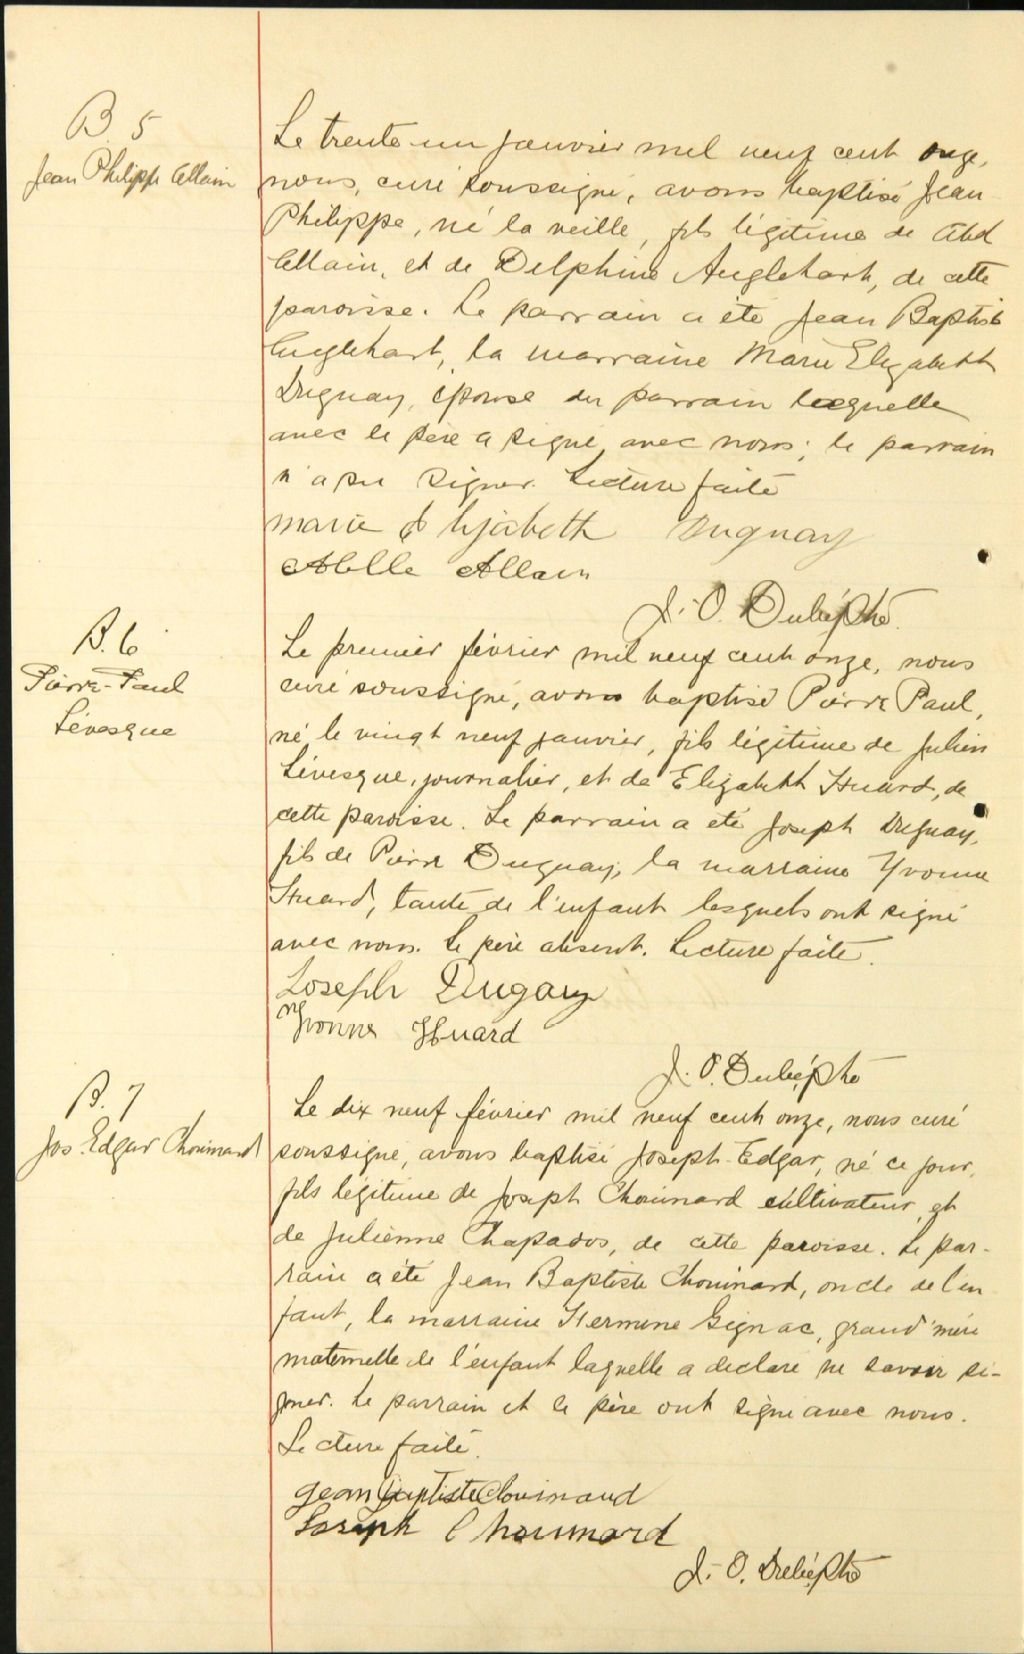 B 5
Jean Philippe Allain
Le trente-un janvier mil neuf cent onze,
nous, curé soussigné, avons baptisé Jean
Philippe, né la veille, fils légitime de Abel
Allain, et de Delphine Anglehart, de cette
paroisse. Le parrain a été Jean Baptiste
Anglehart, la marraine Marie Elizabeth
Duguay, épouse du parrain laquelle
avec le père a signé avec nous; le parrain
n'a su signer. Lecture faite
marie Elizabeth Duguay
Abelle Allain
J.-O. Dubé, Ptre.
B. 6
Pierre-Paul
Lévesque
Le premier février mil neuf cent onze, nous
curé soussigné, avons baptisé Pierre Paul,
né le vingt neuf janvier, fils légitime de Julien
Lévesque, journalier, et de Elizabeth Huard, de
cette paroisse. Le parrain a été Joseph Duguay,
fils de Pierre Duguay, la marraine Yvonne
Huard, tante de l'enfant lesquels ont signé
avec nous. Le père absent. Lecture faite.
Joseph Dugay
Yvonne Huard
J. O. Dubé, ptre
B. 7
Jos. Edgar Chouinard
Le dix neuf février mil neuf cent onze, nous curé
soussigné, avons baptisé Joseph-Edgar, né ce jour,
fils légitime de Joseph Chouinard cultivateur, et
de Julienne Chapados, de cette paroisse. Le par-
rain a été Jean Baptiste Chouinard, oncle de l'en
fant, la marraine Hermine Gignac, grand'mère
maternelle de l'enfant laquelle a déclaré ne savoir si-
gner. Le parrain et le père ont signé avec nous.
Lecture faite.
Jean Baptiste Chouinard
Joseph Chouinard
J.-O. Dubé, Ptre